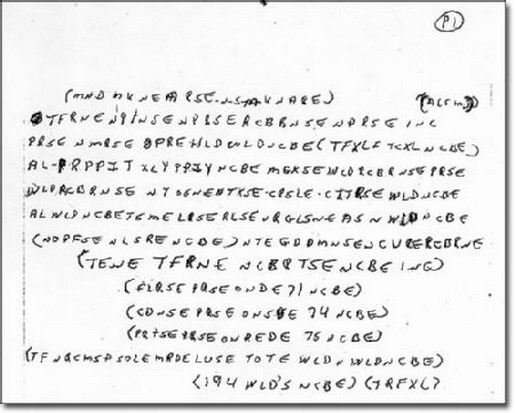 P1
(MND MKNEARSE-N-S-MKNARE) (ACSM)
TFRNENPINSENPBSERCBBNSENPRSEINC
PRSENMRSEOPREHLDWLDNCBE(TFXLFTCXLNCBE)
AL-PRPPITXLYPPIYNCBE MGKSEWLDRCBRNSEPRSE
WLDRCBRNSE NTSGNENTXSE-CRSLE-CITRSEWLDNCBE
ALWLDNCBETSMELRSERLSEURGLSNEASNWLDNCBE
(NOPFSENLSRENCBE)NTEGDDMNSENCURERCBRNE
(TENE TFRNE NCBRTSENCBEING)
(FLRSEPRSEONDE71NCBE)
(CDNSEPRSEONSDE74NCBE)
(PRTSEPRSEONREDE75NCBE)
(TFNQCMSPSOLEMRDELUSE TOTE WLDNWLDNCBE)
(194WLD'SNCBE)(TRFXL)